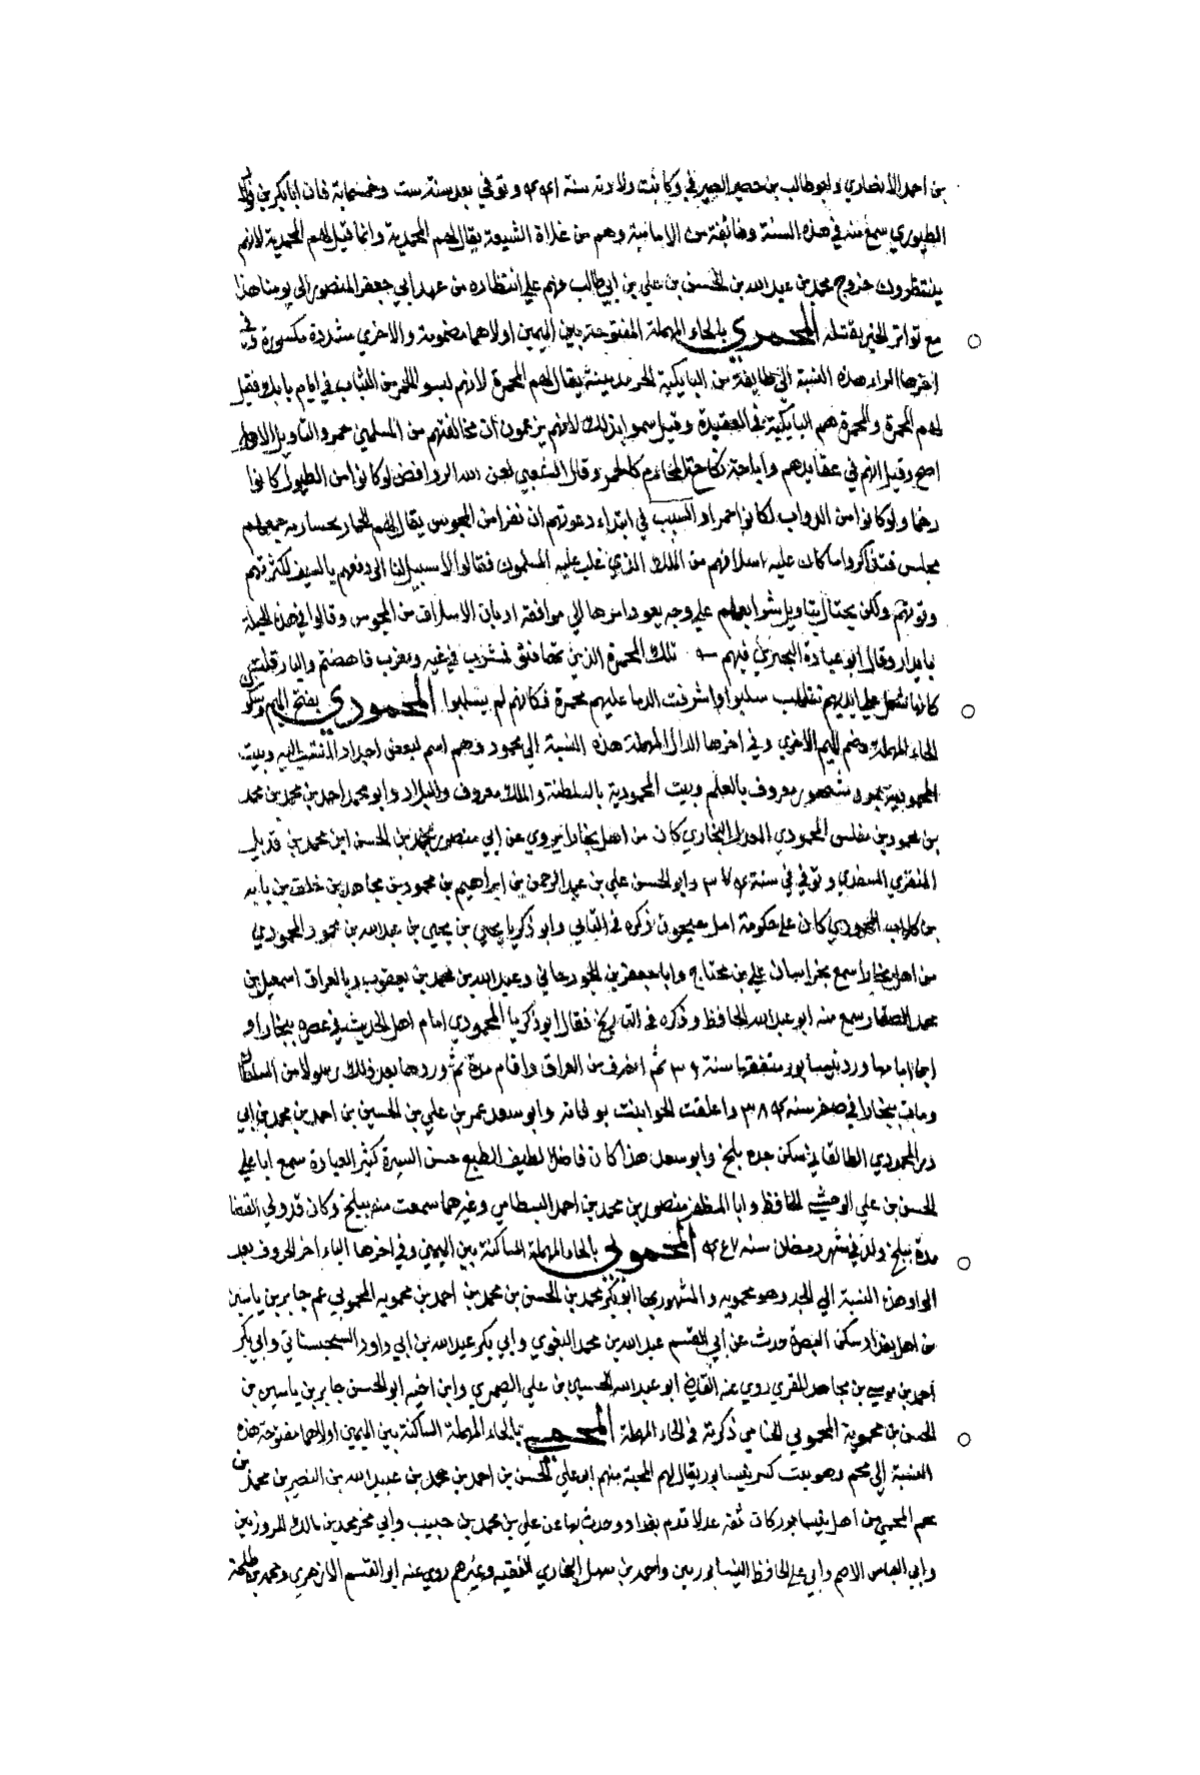 بن احمد الانصاري وابو طالب بن خضير الصيرفي وكانت ولادته سنة وتوفي بعد سنة ست وخمسماية فان ابابكر بن
الطيوري سمع منه في هذه السنة وطائفة من الامامية وهم من غلاة الشيعة يقال لهم المحمدية وانما قيل لهم المحمدية لانهم
ينتظرون خروج محمد بن عبد الله بن الحسن بن علي بن ابي طالب فهم علي انتظاره من عهد ابي جعفر المنصور الي يومنا هذا
مع تواتر الخبر بقتله المحمري بالحاء المهملة المفتوحة بين الميمين اولاهما مضمومة والاخري مشددة مكسورة وفي
اخرها الراء هذه النسبة الي طايفة من البابكية الخرمدينية يقال لهم المحمرة لانهم لبسوا الحمر من الثياب في ايام بابك وقيل
لهم المحمرة والمحمرة هم البابكية في العقيدة وقيل سموا بذلك لانهم يزعمون ان مخالفتهم من المسلمين حمر والتاويل الاول
اصح وقيل انهم في عقايدهم واباحة نكاح المحارم كالحمر وقال الشعبي لعن الله الروافض لو كانوا من الطيور كانوا
رخما ولو كانوا من الدواب لكانوا حمرا والسبب في ابتداء دعوتهم ان نفرا من المجوس يقال لهم جمعهم
مجلس فتذاكروا ما كان عليه اسلافهم من الملك الذي غلب عليه المسلمون فقالوا لا سبيل لنا الي دفعهم بالسيف لكثرتهم
وقوتهم ولكن يحتال بتاويل شرايعهم علي وجه يعود امرها الي موافقة اديان الاسلاف من المجوس وقالوا في هذه الحيلة
وقال ابو عبادة البحتري فيهم تلك المحمرة الذين تهافتوا فمشرق في غيه ومغرب
سلبوا واشرقت الدما عليهم محمرة فكانهم لم يسلبوا المحمودي بفتح الميم وسكون
الحاء المهملة وضم الميم الاخري وفي اخرها الدال المهملة هذه النسبة الي محمود وهم اسم لبعض اجداد المنتسب اليه وبيت
المحمودية بمرو مشهور معروف بالعلم وبيت المحمودية بالسلطنة والملك معروف والبلاد وابو محمد احمد بن محمد بن محمد
بن محمود بن مقلس المحمودي المعدل البخاري كان من اهل بخارا يروي عن ابي منصور محمد بن الحسن ابن محمد بن
وتوفي في سنة وابو الحسن علي بن عبد الرحمن بن ابراهيم بن محمود بن مجاهد بن خلف بن
بن كلاب المحمودي كان علي حكومة امل جيحون ذكره في وابو زكريا يحيي بن يحيي بن عبد الله بن محمود المحمودي
من اهل بخارا سمع بخراسان علي بن محتاج وابا جعفر بن الجوزجاني وعبد الله بن محمد بن يعقوب وبالعراق اسمعيل بن
محمد الصفار سمع منه ابو عبد الله الحافظ وذكره في التاريخ فقال ابو زكريا المحمودي امام اهل الحديث في عصره ببخارا و
ورد نيسابور متفقها سنة ثم انصرف من العراق واقام مدة ثم وردها بعد ذلك رسولا من السلطان
ومات ببخارا في صفر سنة وابو سعد عمر بن علي بن الحسين بن احمد بن محمد بن ابي
ذر المحمودي الطالقاني سكن جده بلخ وابو سعد هذا كان فاضلا لطيف الطبع حسن السيرة كثير العبادة سمع ابا علي
الحسن بن علي الوخشي الحافظ وابا المظفر منصور بن محمد بن احمد البسطامي وغيرهما سمعت منه ببلخ وكان قد ولي القضا
مدة ببلخ ولد في شهر رمضان سنة المحمويي بالحاء المهملة الساكنة بين الميمين وفي اخرها الياء اخر الحروف بعد
الواو هذه النسبة الي الجد وهو محمويه والمشهور بها ابو بكر محمد بن الحسن بن محمد بن احمد بن محمويه المحمويي عم جابر بن ياسين
من اهل بغداد سكن البصرة وحدث عن ابي القسم عبد الله بن محمد البغوي وابي بكر عبد الله بن ابي داود السجستاني وابي بكر
احمد بن موسي بن مجاهد المقري روي عنه القاضي ابو عبد الله الحسين بن علي الصيمري وابن اخيه ابو الحسن جابر بن ياسين بن
الحسن بن محموية المحمويي الحنا ذكرته في الحاء المهملة المحمي بالحاء المهملة الساكنة بين الميمين اولاهما مفتوحة هذه
النسبة الي محم وهو بيت كبير بنيسابور يقال لهم المحمية منهم ابو علي الحسن بن احمد بن محمد بن عبيد الله بن النصر بن محمد بن
محم المحمي من اهل نيسابور كان ثقة عدلا قدم بغداد وحدث بها عن علي بن محمد بن حبيب وابي محمد بن مالك المروزيين
وابي العباس الاصم وابي علي الحافظ النيسابوريين واحمد بن سهل البخاري الفقيه وغيرهم روي عنه ابو القسم الازهري ومحمد بن طلحة